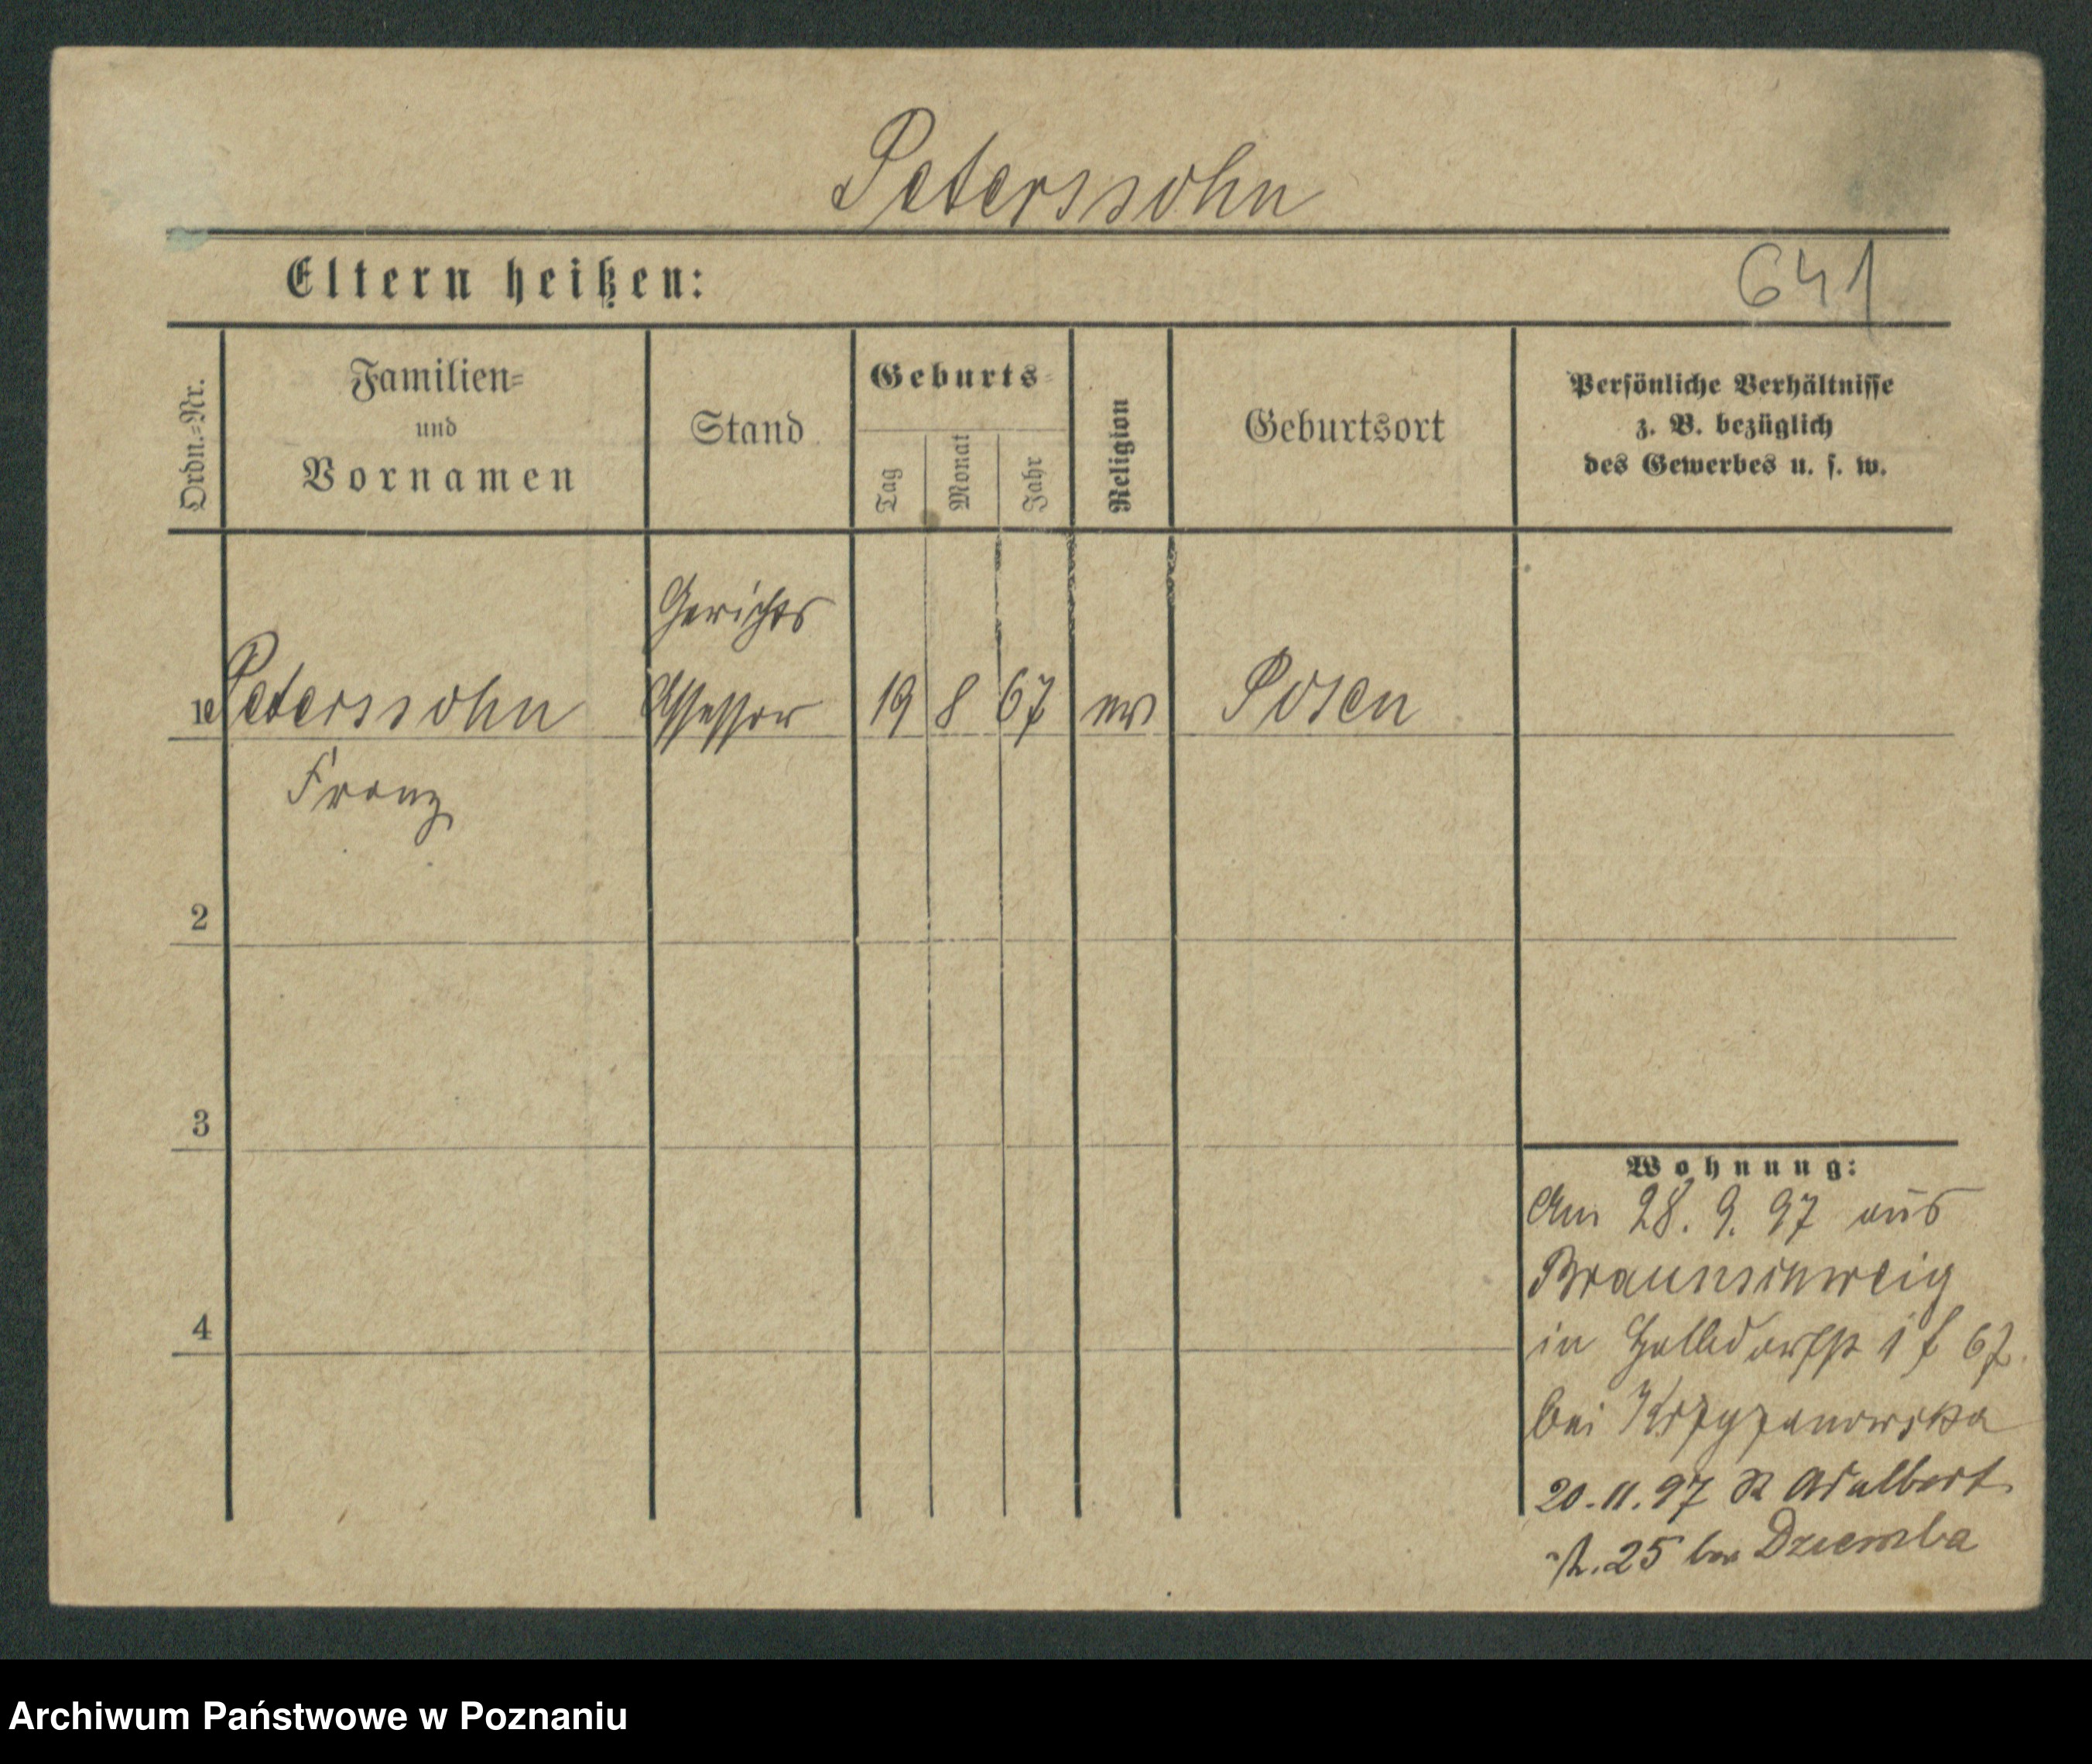 Peterssohn
Eltern heißen:
641
Ordn.=Nr.
Familien=
und
Vornamen
Stand
Geburts=
Tag
Monat
Jahr
Religion
Geburtsort
Persönliche Verhältnisse
z. B. bezüglich
des Gewerbes u. s. w.
Gerichts
1 Peterssohn Assessor 19 8 67 ev Posen
Franz
2
3
4
Wohnung:
Am 28. 9. 97 aus
Braunschweig
in Halbdorfst 1 67.
bei Krzyzanowska
20.11.97 St Adalbert
st. 25 bei Dziemba
Archiwum Państwowe w Poznaniu